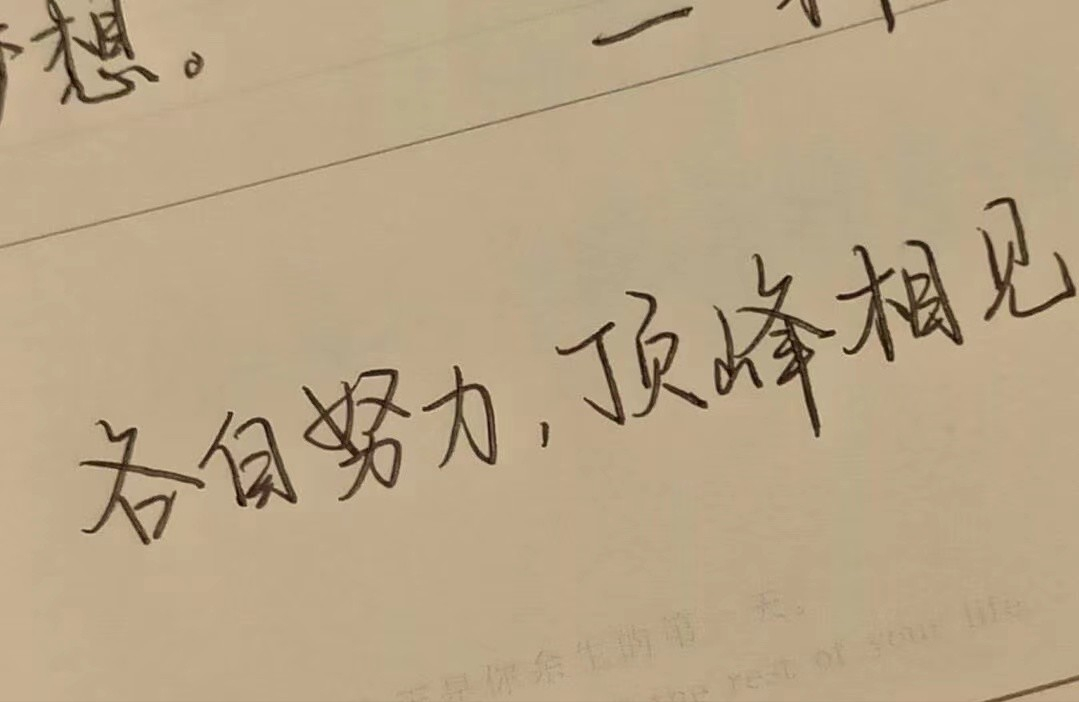 想。
一
各自努力,顶峰相见
是你余生的第一天。
the rest of your life